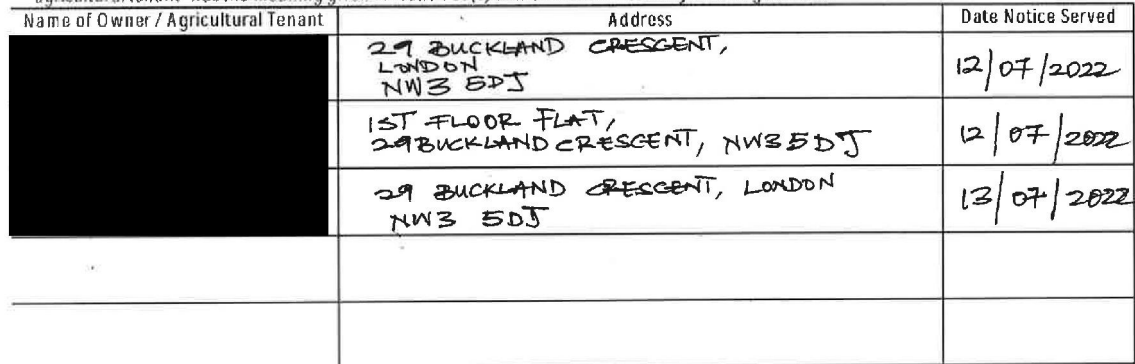 Name of Owner / Agricultural Tenant Address Date Notice Served
29 BUCKLAND CRESCENT,
LONDON
NW3 5DJ
12/07/2022
1ST FLOOR FLAT,
29 BUCKLAND CRESCENT, NW3 5DJ
12/07/2022
29 BUCKLAND CRESCENT, LONDON
NW3 5DJ
13/07/2022